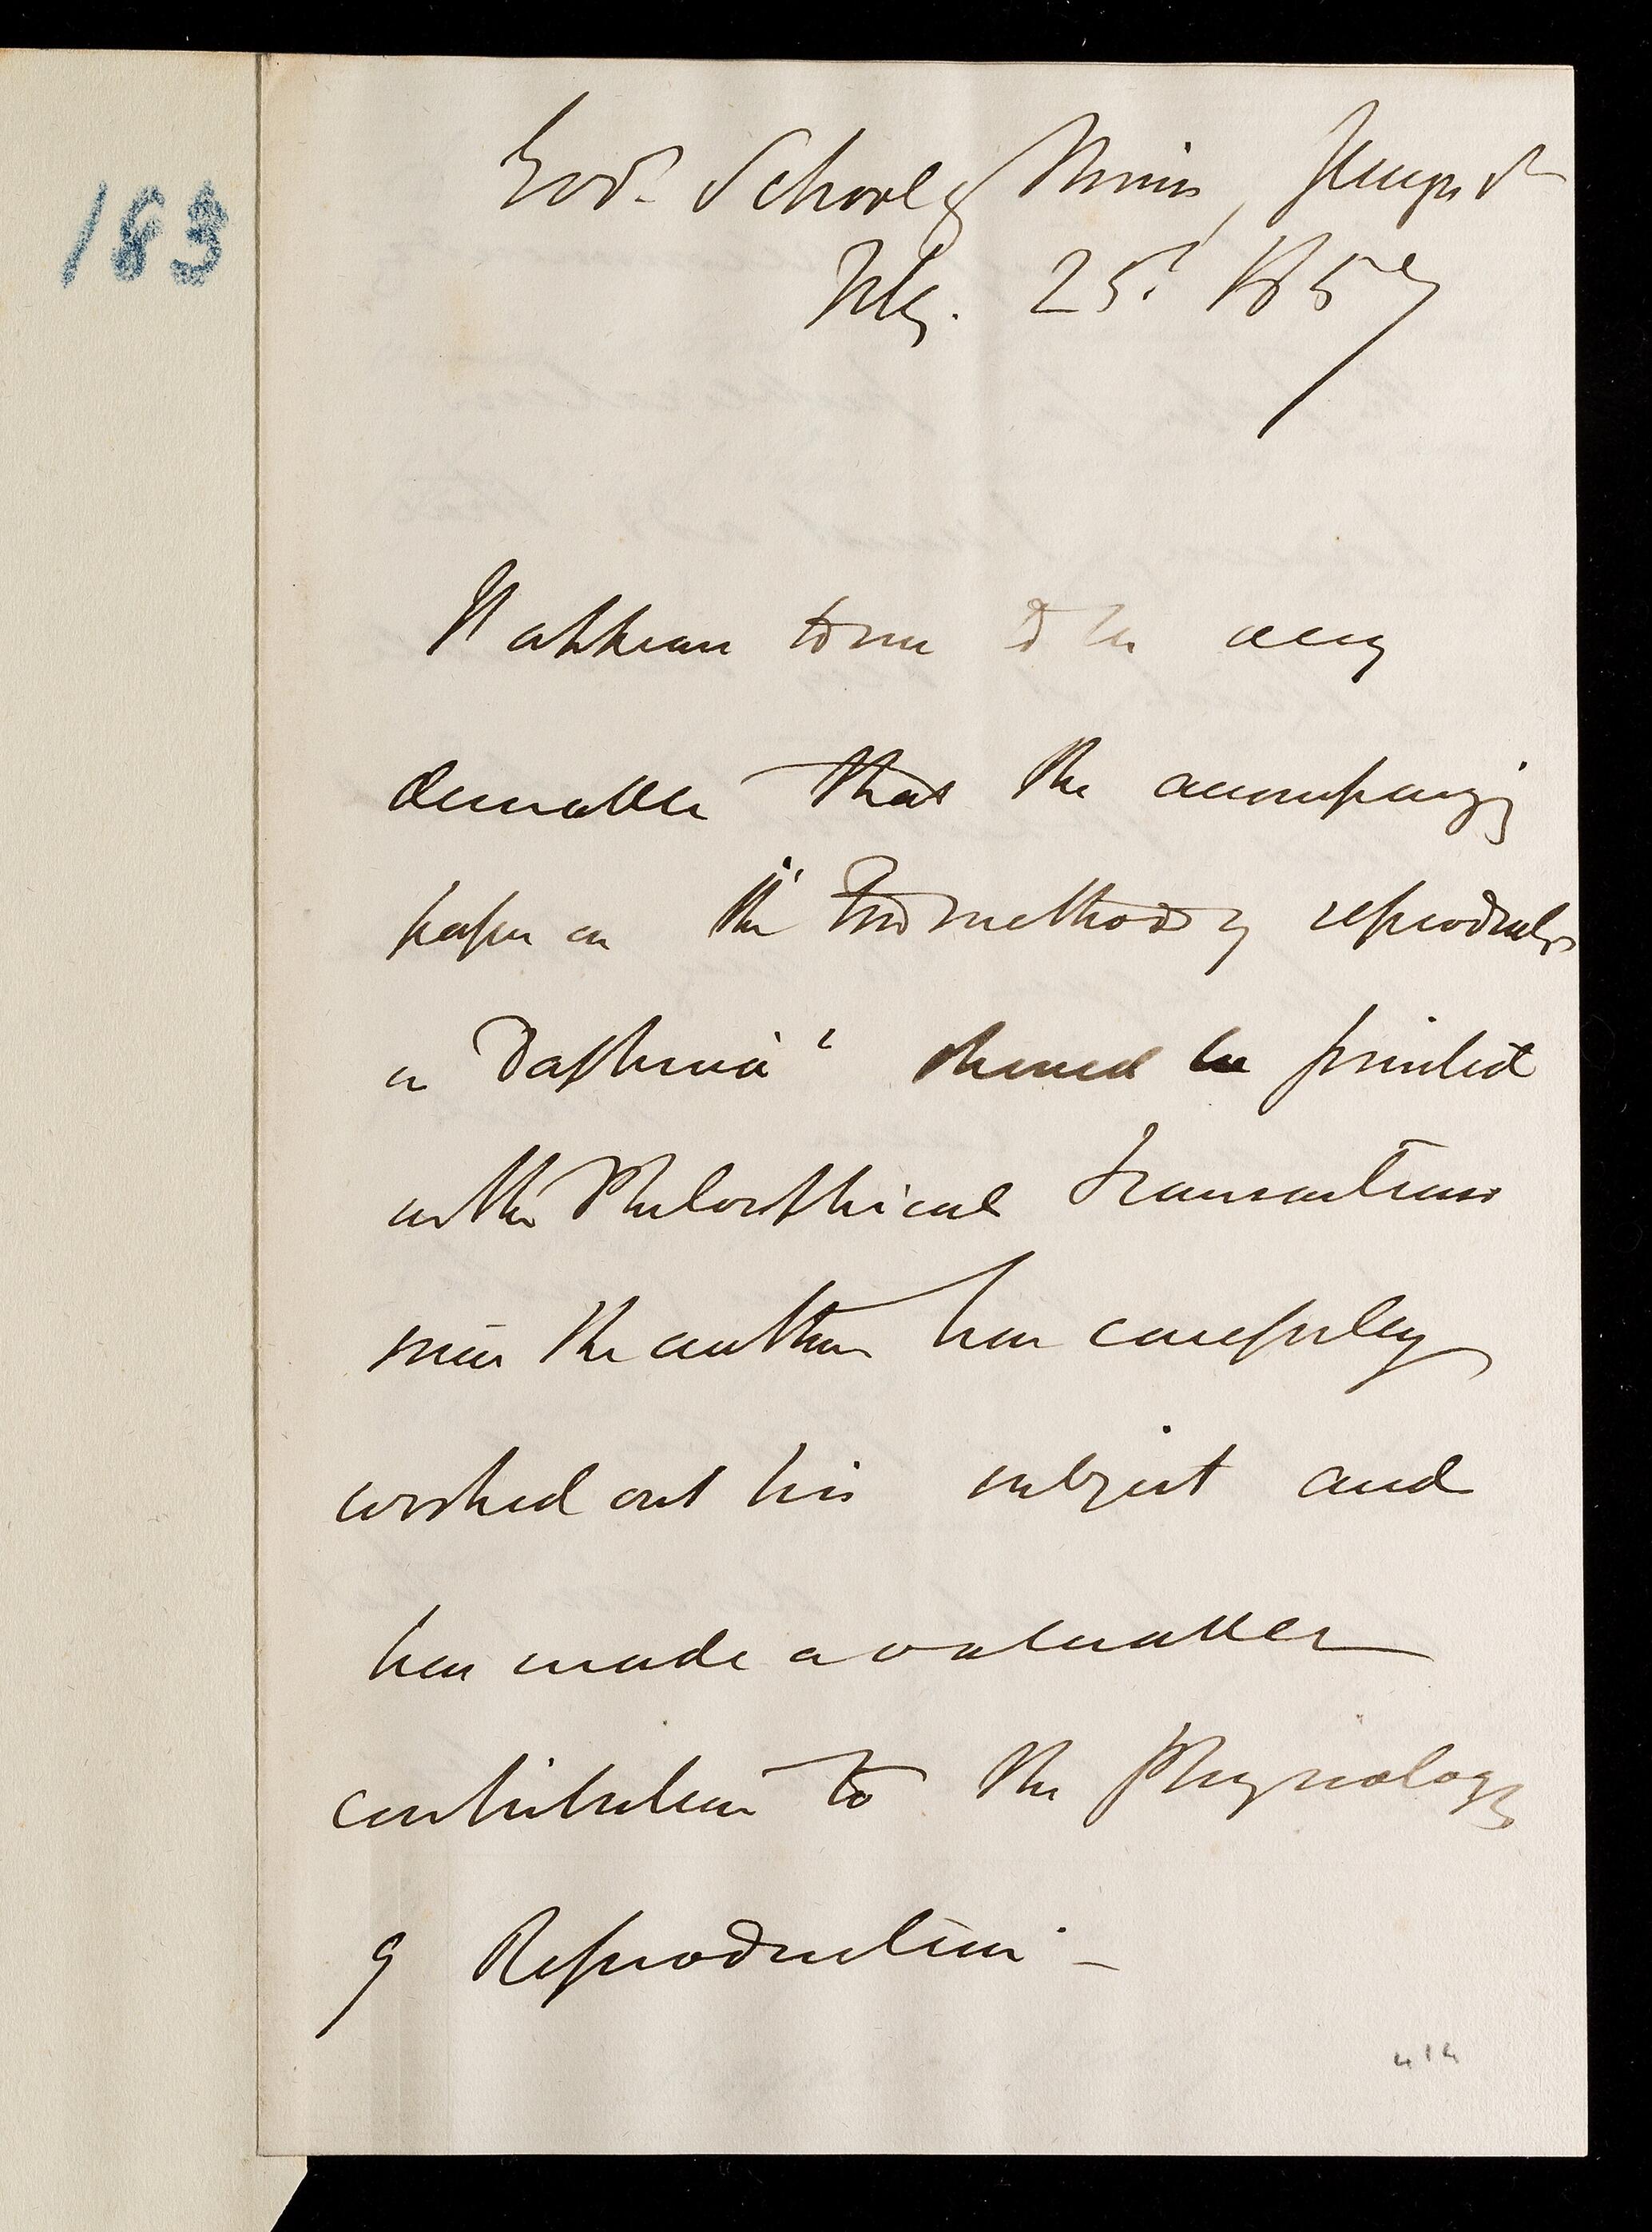 183
Govt. School of Mines, Jermyn St
July. 25th 1857
It appears to me to be very
desirable that the accompanying
paper on "the two methods of reproduction
in Daphnia" should be printed
in the Philosophical Transactions
since the author has carefully
worked out his subject and
has made a valuable
contribution to the Physiology
of Reproduction –
414